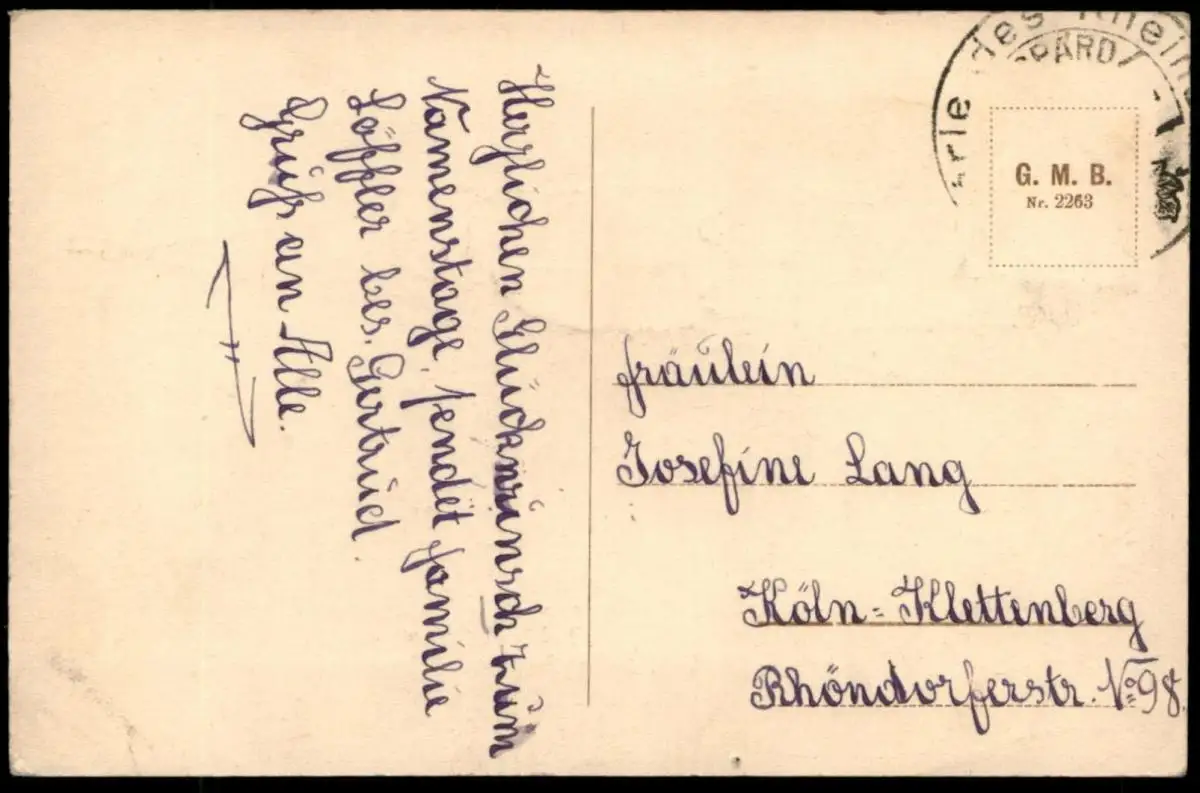 Herzlichen Glückwünsch zum
Namenstage, sendet familie
Löffler bes. Gertrud.
Grüß an Alle.
erle des Rhein
PPARD
G. M. B.
Nr. 2263
fräulein
Josefine Lang
Köln=Klettenberg
Rhöndorferstr. No 98.